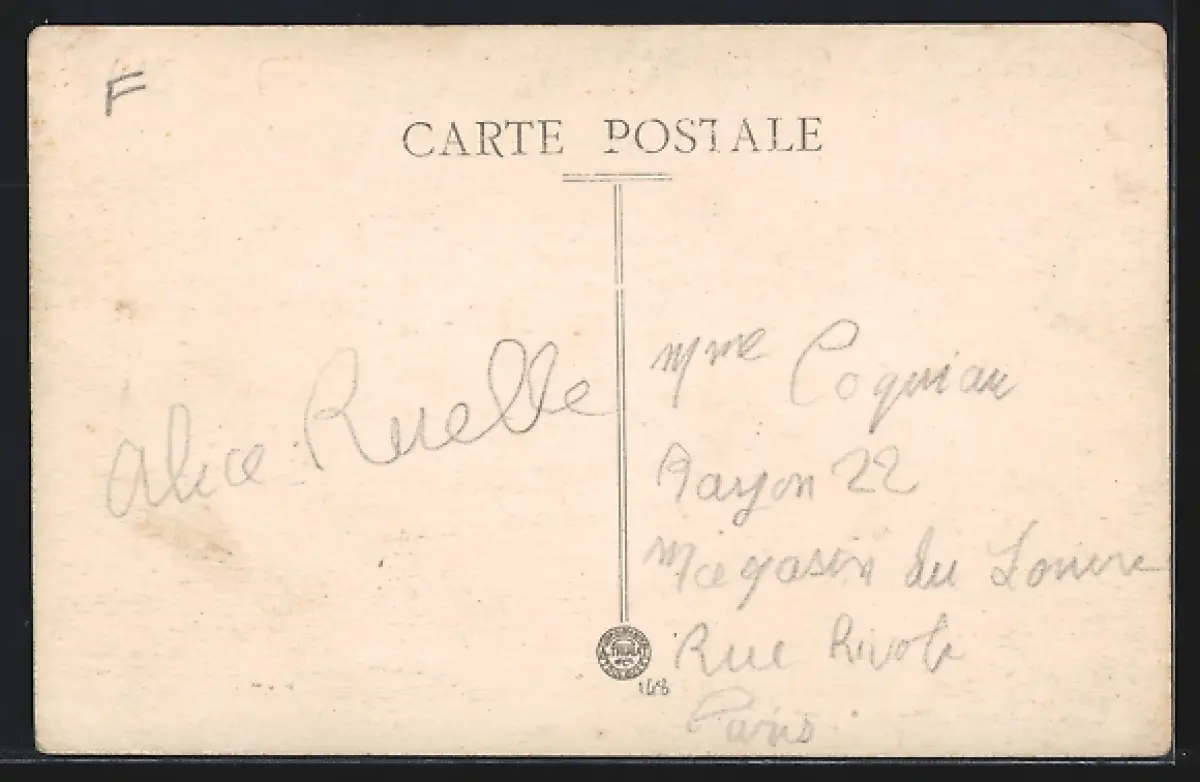 F
CARTE POSTALE
Alice Ruelle
Mme Coquiau
Rayon 22
Magasin du Louvre
Rue Rivoli
Paris
168